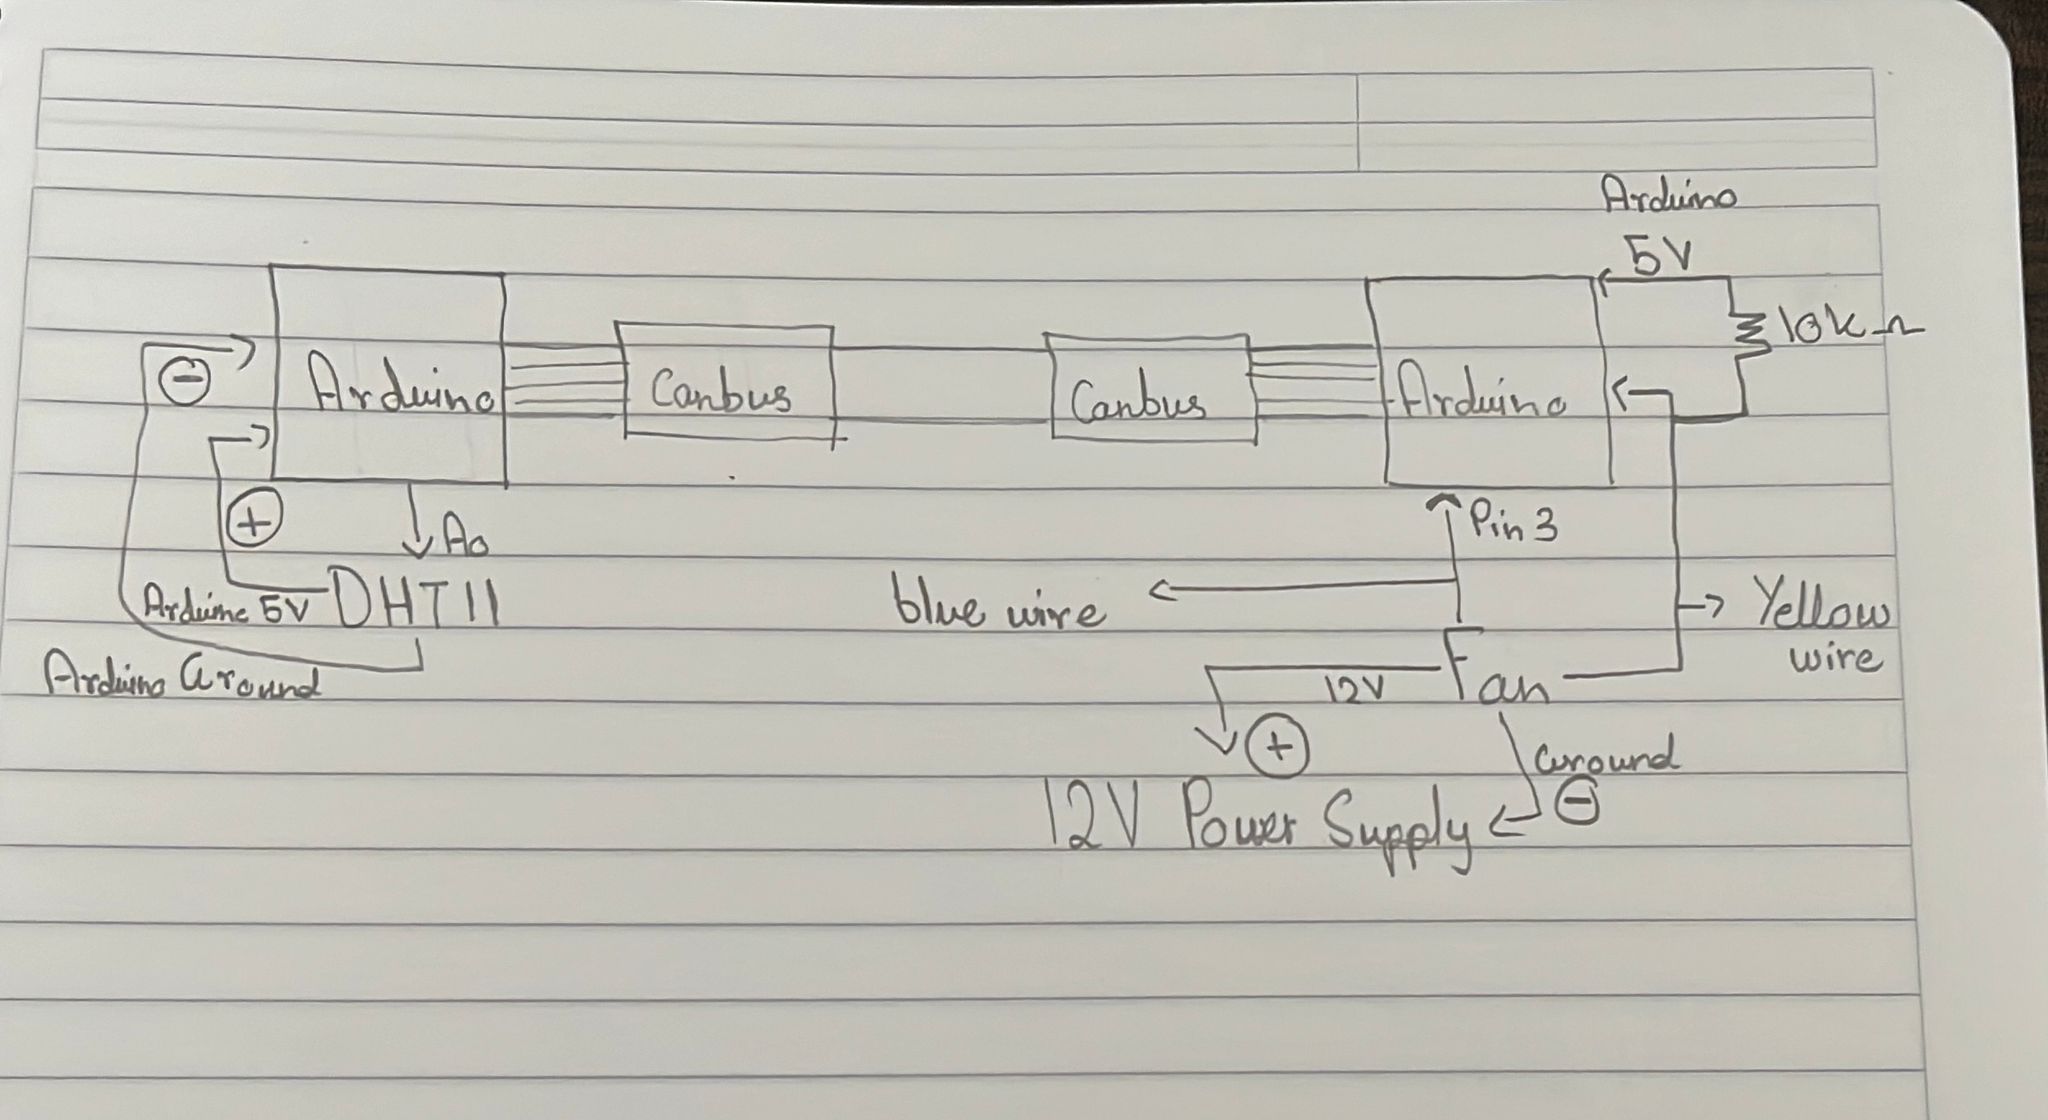 Arduino
5V
10kΩ
⊖
Arduino
Canbus
Canbus
Arduino
⊕
A0
Pin 3
Arduino 5V
DHT11
blue wire
Yellow
wire
Arduino Ground
12V
Fan
⊕
Ground
⊖
12V Power Supply